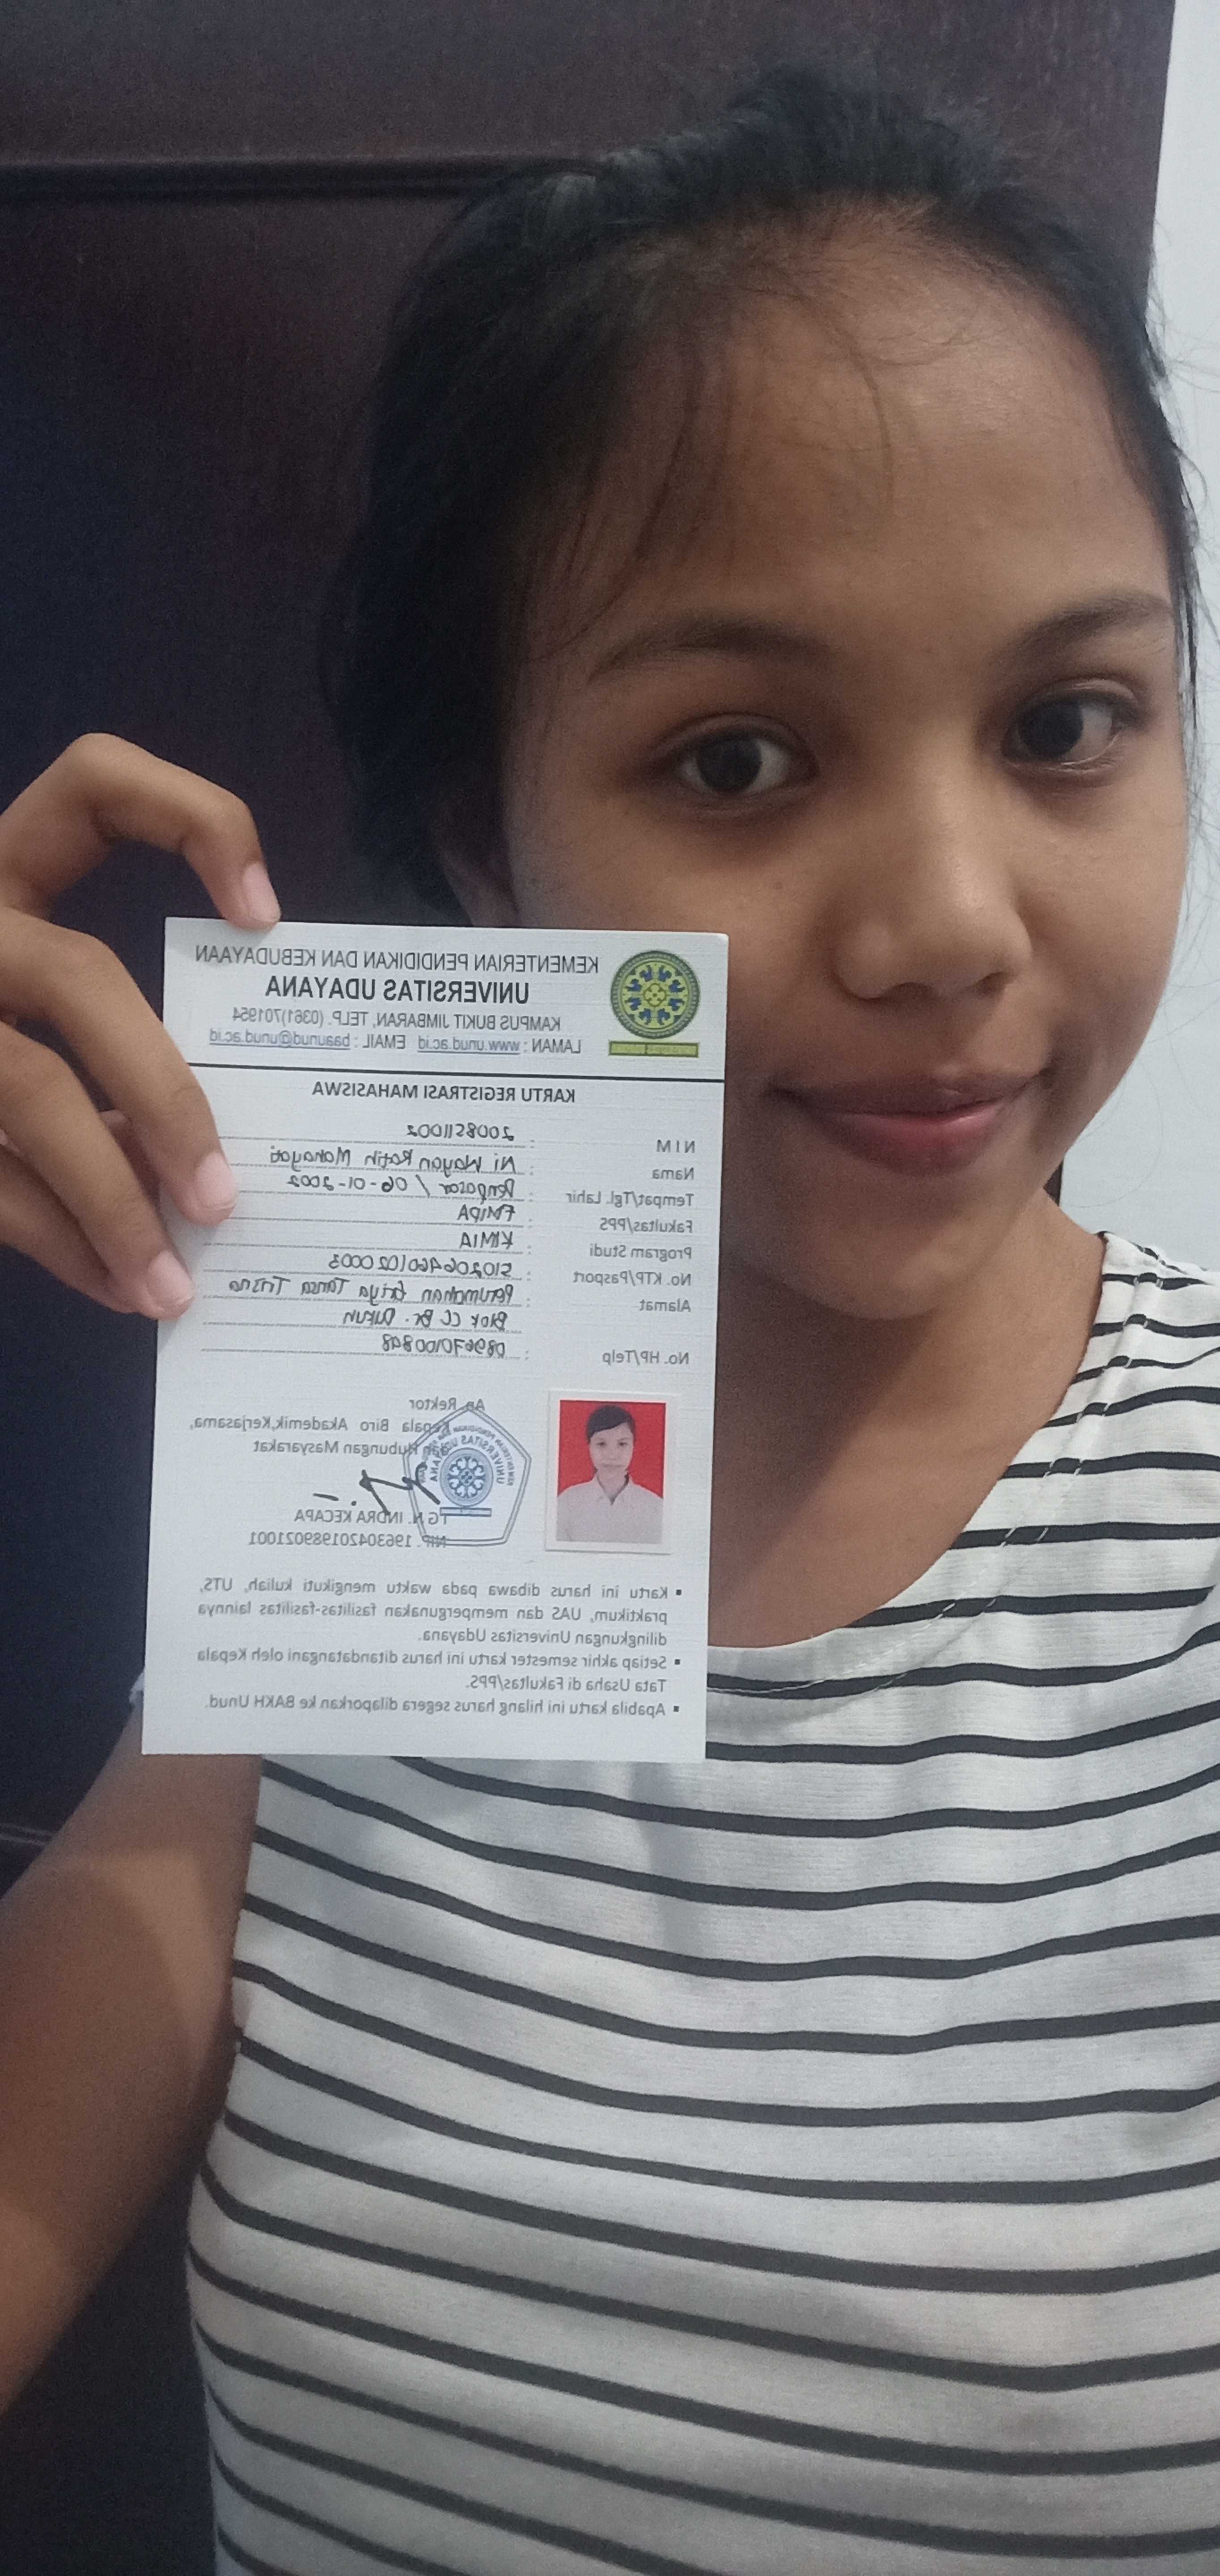 KEMENTERIAN PENDIDIKAN DAN KEBUDAYAAN
UNIVERSITAS UDAYANA
KAMPUS BUKIT JIMBARAN, TELP. (0361)701954
LAMAN : www.unud.ac.id EMAIL : baaunud@unud.ac.id
KARTU REGISTRASI MAHASISWA
NIM : 2008511002
Nama : Ni Wayan Ratih Mahayati
Tempat/Tgl. Lahir : Denpasar / 06-01-2002
Fakultas/PPS : FMIPA
Program Studi : KIMIA
No. KTP/Pasport : 5102064601020003
Alamat : Perumahan Griya Tansa Trisna
Blok CC Br. Dukuh
No. HP/Telp :
An. Rektor
Kepala Biro Akademik,Kerjasama,
dan Hubungan Masyarakat
UNIVERSITAS UDAYANA
I G.N. INDRA KECAPA
NIP. 196304201989021001
▪ Kartu ini harus dibawa pada waktu mengikuti kuliah, UTS,
praktikum, UAS dan mempergunakan fasilitas-fasilitas lainnya
dilingkungan Universitas Udayana.
▪ Setiap akhir semester kartu ini harus ditandatangani oleh Kepala
Tata Usaha di Fakultas/PPS.
▪ Apabila kartu ini hilang harus segera dilaporkan ke BAKH Unud.